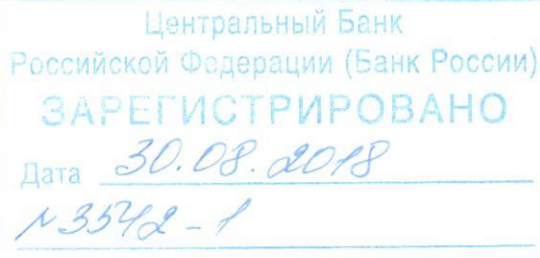 Центральный Банк
Российской Федерации (Банк России)
ЗАРЕГИСТРИРОВАНО
Дата 30.08.2018
№3542-1